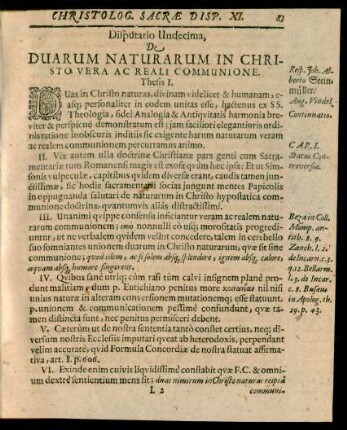 CHRISTOLOG. SACRÆ DISP. XI. 83
Disputatio Undecima,
De
DUARUM NATURARUM IN CHRI-
STO VERA AC REALI COMMUNIONE.
Thesis I.
DUas in Christo naturas, divinam videlicet & humanam, e-
asq; personaliter in eodem unitas esse, hactenus ex SS.
Theologia, fidei Analogia & Antiqvitatis harmonia bre-
viter & perspicuè demonstratum est; jam faciliori elegantioris or-
dinationis inobscuris indiciis sic exigente harum naturarum veram
ac realem communionem percurramus animo.
II. Vix autem ulla doctrinæ Christianæ pars genti cum Sacra-
mentariæ tum Romanensi magis est exosa quàm hæc ipsa; Et ut Sim-
sonis vulpeculæ, capitibus qvidem diversæ erant, caudis tamen jun-
ctissimæ, sic hodie sacramentarii socias jungunt mentes Papicolis
in oppugnanda salutari de naturarum in Christo hypostatica com-
munione doctrina, qvantumvis aliàs distractissimi.
III. Unanimi qvippe consensu inficiantur veram ac realem natu-
rarum communionem; imò nonnulli eò usq; morositatis progredi-
untur, ut ne verbalem qvidem velint concedere, talem in cerebello
suo somniantes unionem duarum in Christo naturarum, qvæ sit sine
communione; qvod idem, ac si solem absq; splendore, ignem absq; calore,
aqvam absq; humore fingerent.
IV. Qvibus sanè utriq; cùm rasi tùm calvi insignem planè pro-
dunt malitiam dum p. Eutichiano penitus more nil nisi
unius naturæ in alteram conversionem mutationemq; esse statuunt,
p. unionem & communicationem pessimè confundunt, qvæ ta-
men distincta sunt, nec penitus permisceri debent.
V. Cæterùm ut de nostra sententia tantò constet certius, neq; di-
versum nostris Ecclesiis imputari qveat ab heterodoxis, perpendant
velim accuratè, qvid Formula Concordiæ de nostra statuat affirma-
tiva, art. 8. p. 606.
VI. Exinde enim cuivis liqvidissimè constabit qvæ F.C. & omni-
um dextrè sentientium mens sit: duas nimirum in Christo naturas reipsâ
L 2 communi-
Resp. Joh. Al-
berto
Aug. Vindel.
Continuatio.
CAP. I.
Status Con-
troversiæ.
Beza in Coll.
Momp.
Zanch. l. 2.
de Incarn. c. 3.
Bellarm.
l. 3. de Incar.
in Apolog. th.
29. p. 43.